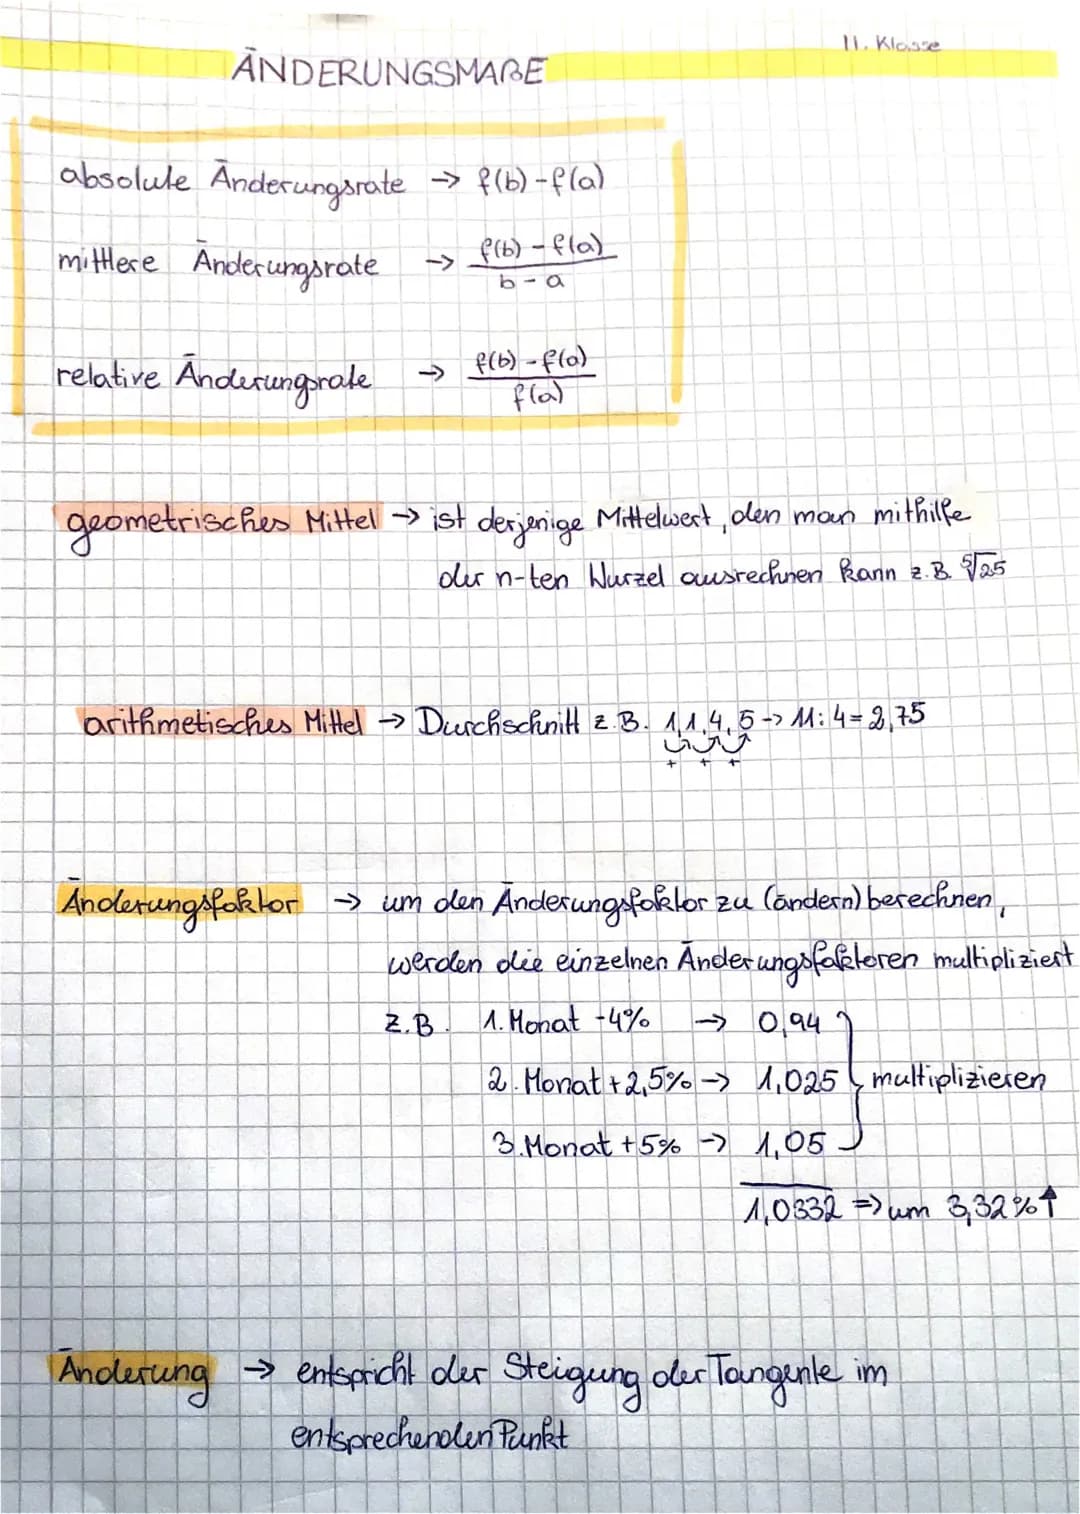 11. Klasse
ÄNDERUNGSMAßE
absolute Änderungsrate → f(b) - f(a)
mittlere Änderungsrate → f(b) - f(a) / b - a
relative Änderungsrate → f(b) - f(a) / f(a)
geometrisches Mittel → ist derjenige Mittelwert, den man mithilfe
der n-ten Wurzel ausrechnen kann z.B. ⁵√25
arithmetisches Mittel → Durchschnitt z.B. 1,1,4,5 -> 11:4=2,75
+ + +
Änderungsfaktor → um den Änderungsfaktor zu (ändern) berechnen,
werden die einzelnen Änderungsfaktoren multipliziert
z.B. 1. Monat -4% → 0,94
2. Monat +2,5% → 1,025 multiplizieren
3. Monat +5% → 1,05
1,0332 => um 3,32% ↑
Änderung → entspricht der Steigung der Tangente im
entsprechenden Punkt